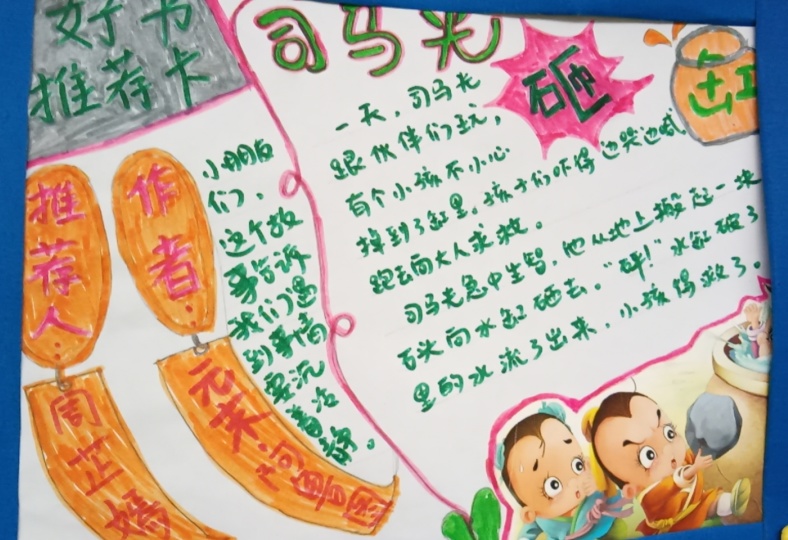 好书
推荐卡
司马光
砸
缸
推荐人:
周芷嫣
作者:
元末·阿鲁图
小朋友
们,
这个故
事告诉
我们遇
到事情
要沉
着冷
静。
一天,司马光
跟伙伴们玩,
有个小孩不小心
掉到了缸里。孩子们吓得边哭边喊
跑去向大人求救。
司马光急中生智,他从地上搬起一块
石头向水缸砸去。“砰!”水缸破了
里的水流了出来,小孩得救了。